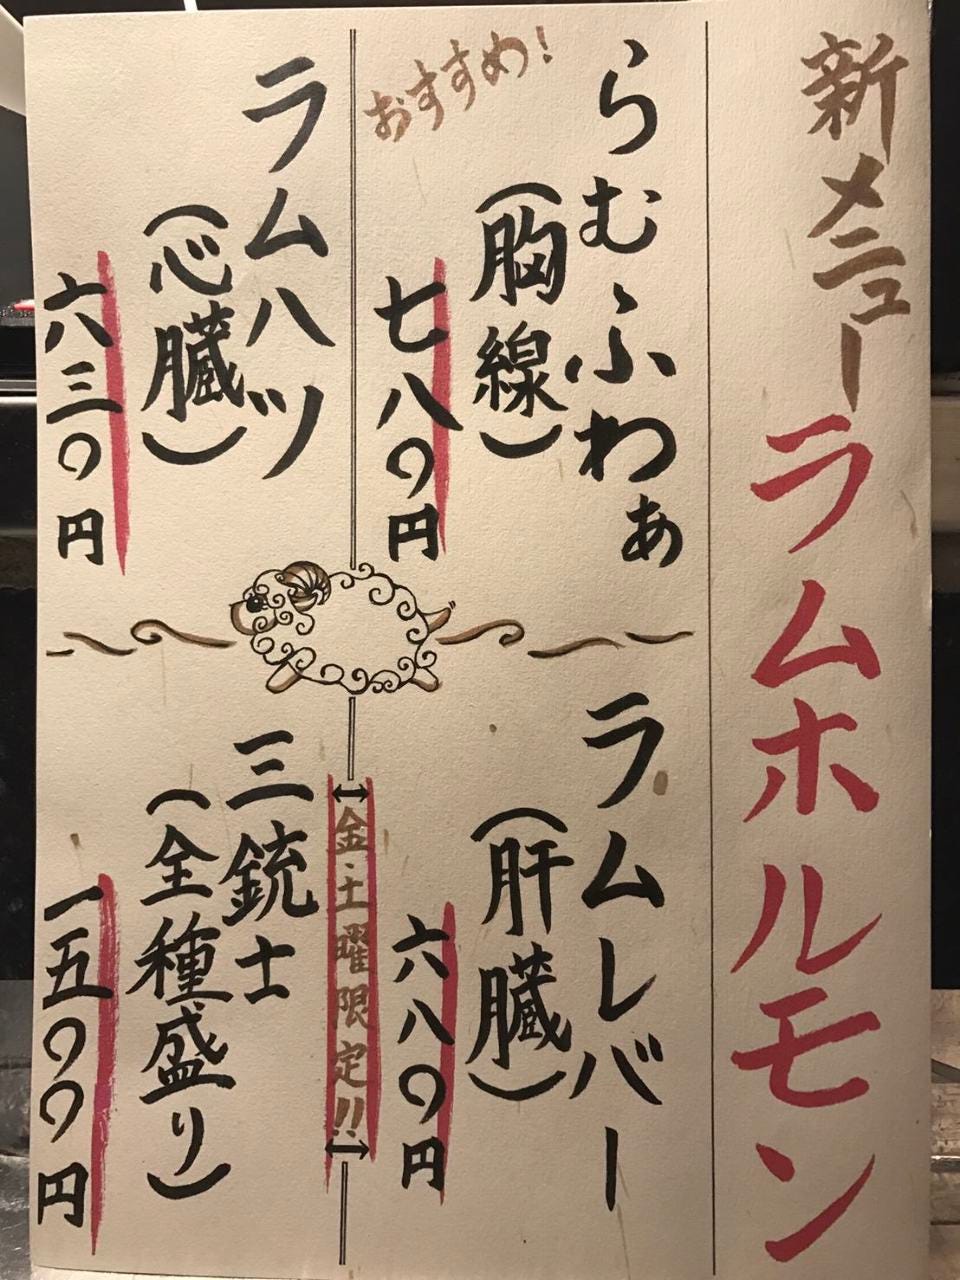 新メニューラムホルモン
らむふわぁ
(胸線)
おすすめ!
七八〇円
ラムハツ
(心臓)
六三〇円
ラムレバー
(肝臓)
六八〇円
金・土曜限定!!
三銃士
(全種盛り)
一五〇〇円